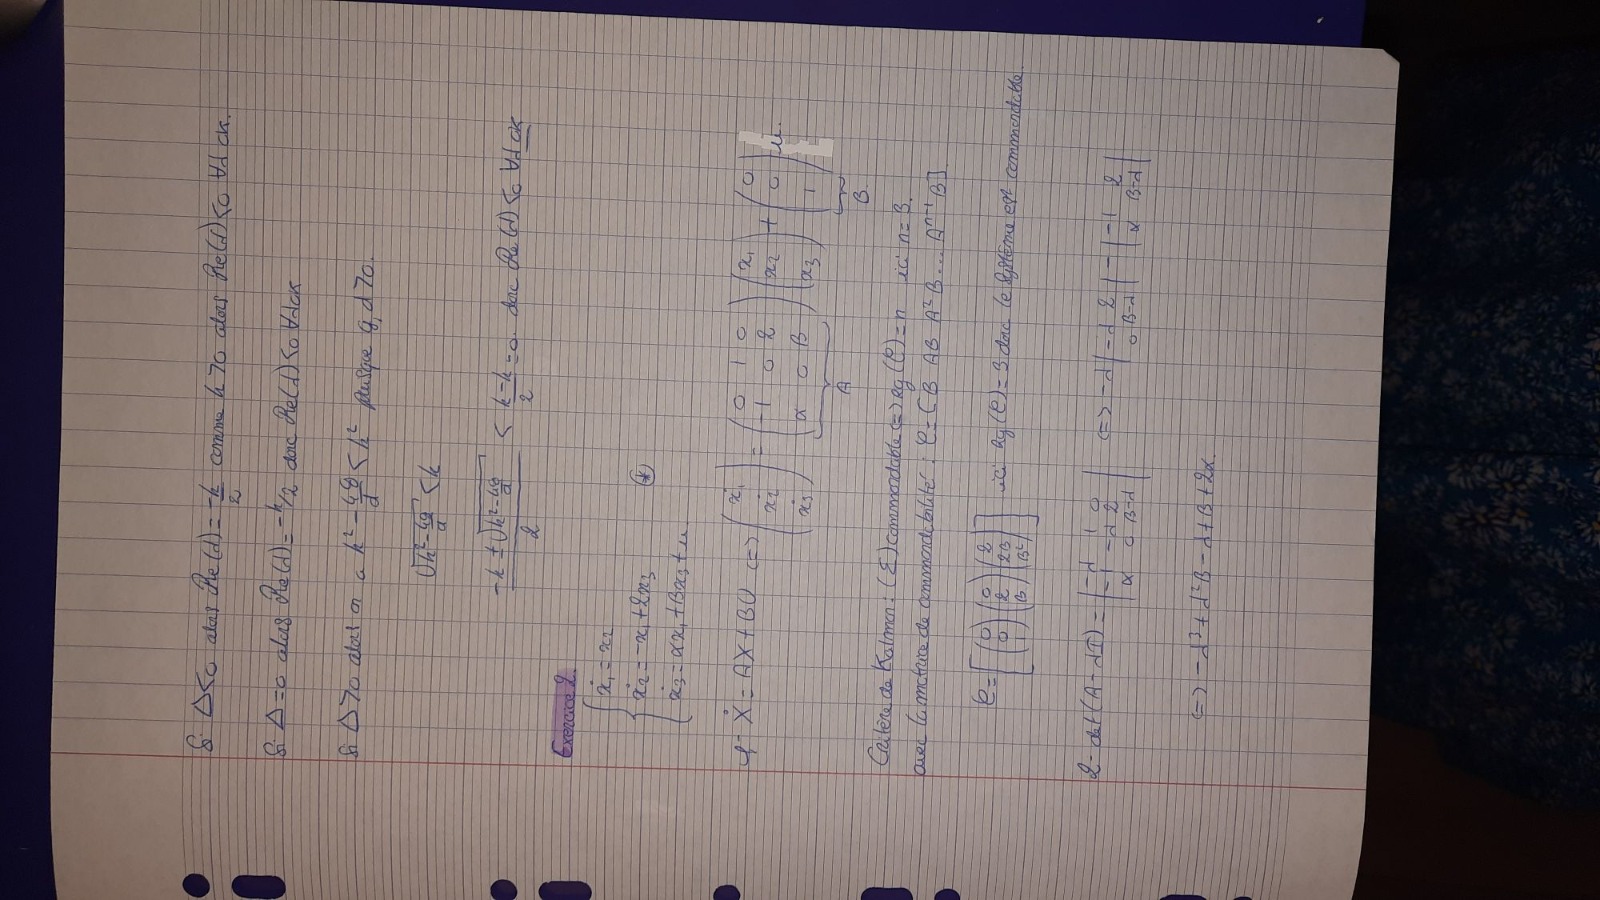 Si Δ<0 alors Re(λ) = -k/2 comme k>0 alors Re(λ)<0 ∀λ ok.
Si Δ=0 alors Re(λ) = -k/2 donc Re(λ)<0 ∀λ ok
Si Δ>0 alors on a k² - 4g/d < k² puisque g,d>0.
√(k² - 4g/d) < k
(-k ± √(k² - 4g/d))/2 < (k-k)/2 = 0. donc Re(λ)<0 ∀λ ok
Exercice 2.
{ ẋ₁ = x₂
ẋ₂ = -x₁ + 2x₃ (*)
ẋ₃ = αx₁ + βx₃ + u.
1- Ẋ = AX + BU <=> (ẋ₁ ẋ₂ ẋ₃) = (0 1 0; -1 0 2; α 0 β) (x₁ x₂ x₃) + (0 0 1) u.
A B.
Critère de Kalman: (Σ) commandable <=> rg(C) = n ici n=3.
avec la matrice de commandabilité : C = [B AB A²B ... Aⁿ⁻¹B].
C = [(0 0 1) (0 2 β) (2 2β β²)] ici rg(C) = 3 donc le système est commandable.
2- det(A-λI) = |-λ 1 0; -1 -λ 2; α 0 β-λ| <=> -λ |-λ 2; 0 β-λ| - |-1 2; α β-λ|
<=> -λ³ + λ²β - λ + β + 2α.